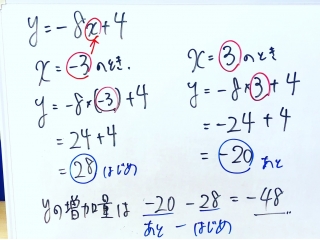 y=-8x+4
x=-3のとき.
y=-8×(-3)+4
=24+4
=28 はじめ
x=3のとき
y=-8×3+4
=-24+4
=-20 あと
yの増加量は -20-28=-48
あと-はじめ